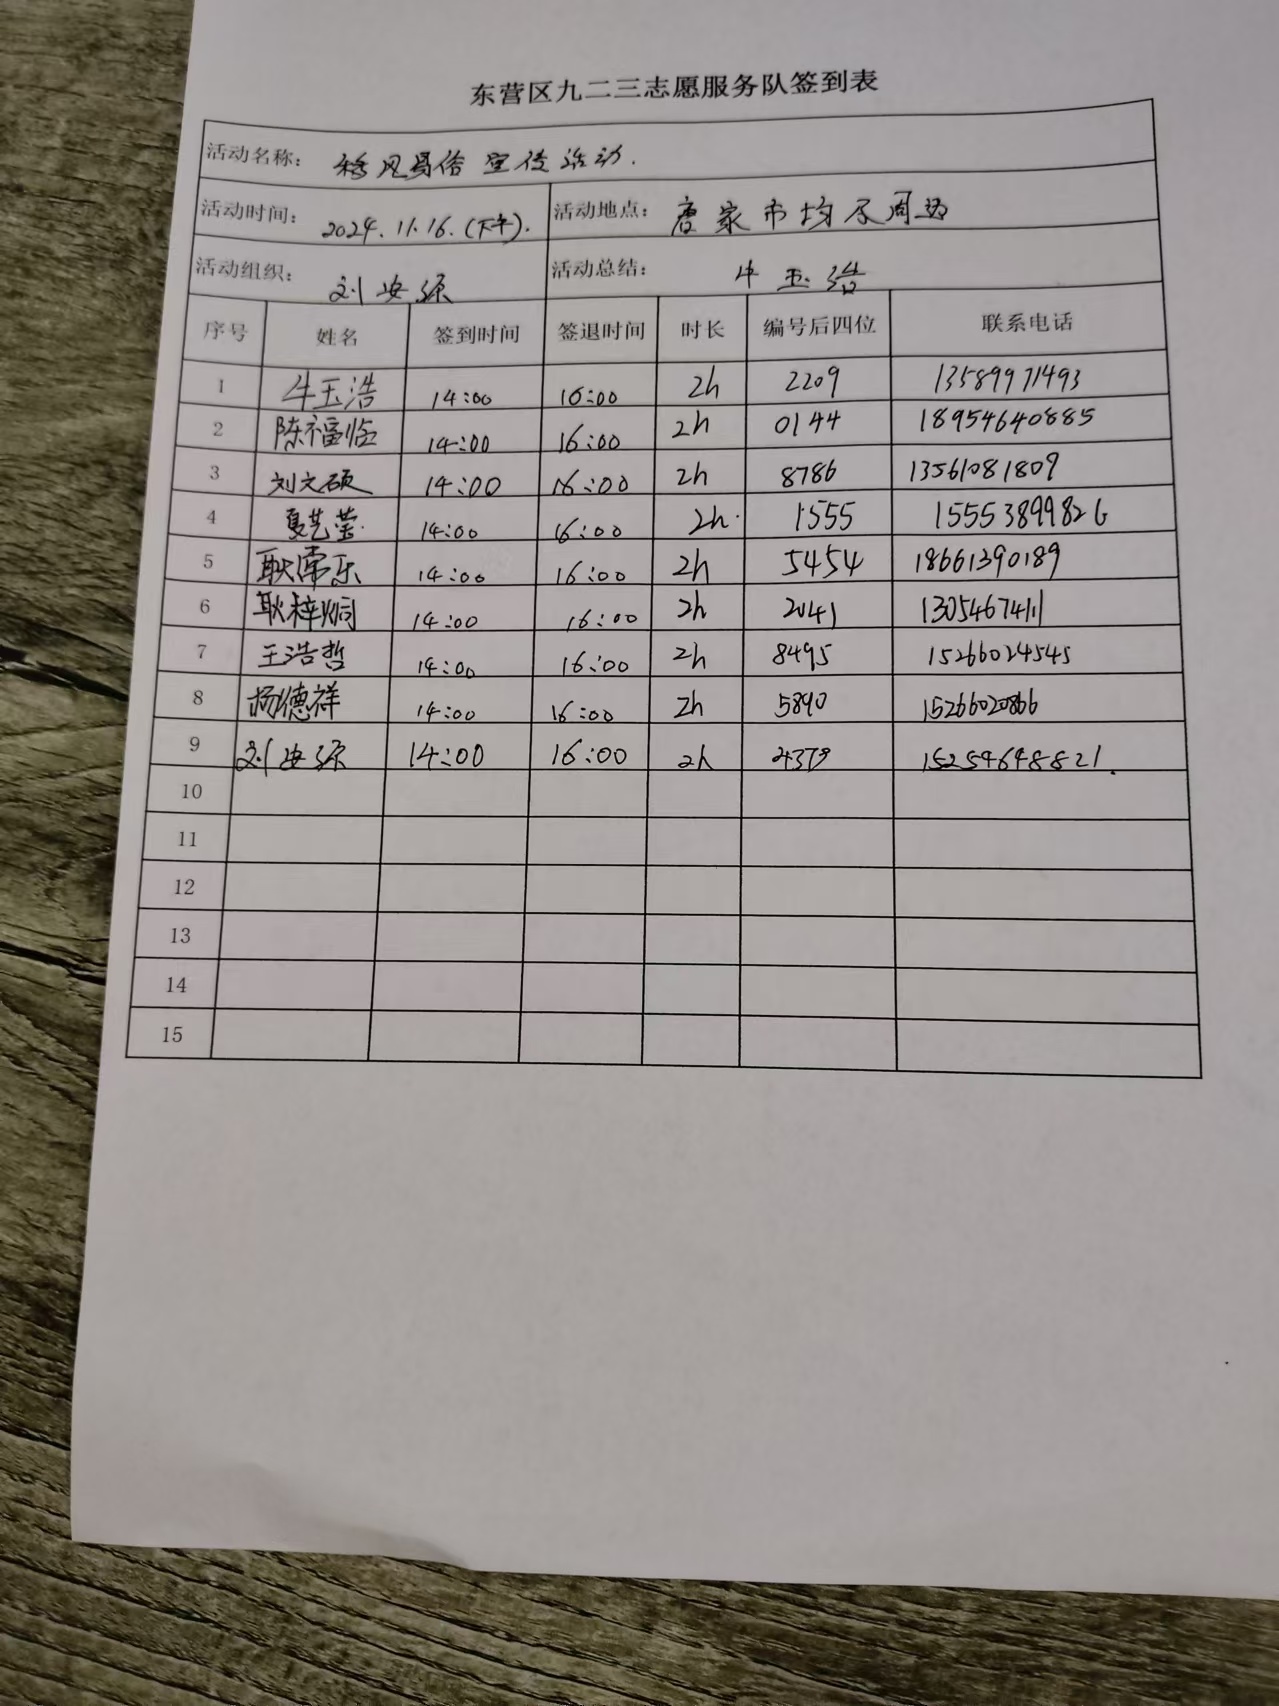 东营区九二三志愿服务队签到表
活动名称： 移风易俗宣传活动.
活动时间： 2024.11.16.(下午). 活动地点： 唐家市场及周边
活动组织： 刘安源 活动总结： 牛玉浩
序号 姓名 签到时间 签退时间 时长 编号后四位 联系电话
1 牛玉浩 14:00 16:00 2h 2209 13589971493
2 陈福临 14:00 16:00 2h 0144 18954640885
3 刘文硕 14:00 16:00 2h 8786 13561081809
4 夏艺莹. 14:00 16:00 2h. 1555 15553899826
5 14:00 16:00 2h 5454 18661390189
6 耿梓炯 14:00 16:00 2h 2041 13054674111
7 王浩哲 14:00 16:00 2h 8495 15266024545
8 杨德祥 14:00 16:00 2h 5890
9 刘安源 14:00 16:00 2h 4379 15254648821.
10
11
12
13
14
15